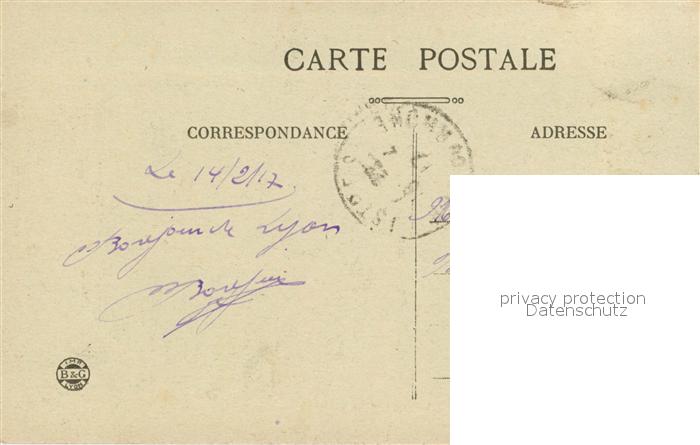 CARTE POSTALE
CORRESPONDANCE
ADRESSE
Le 14/2/17
Bonjour de Lyon
privacy protection
Datenschutz
IMP.
B&G
LYON